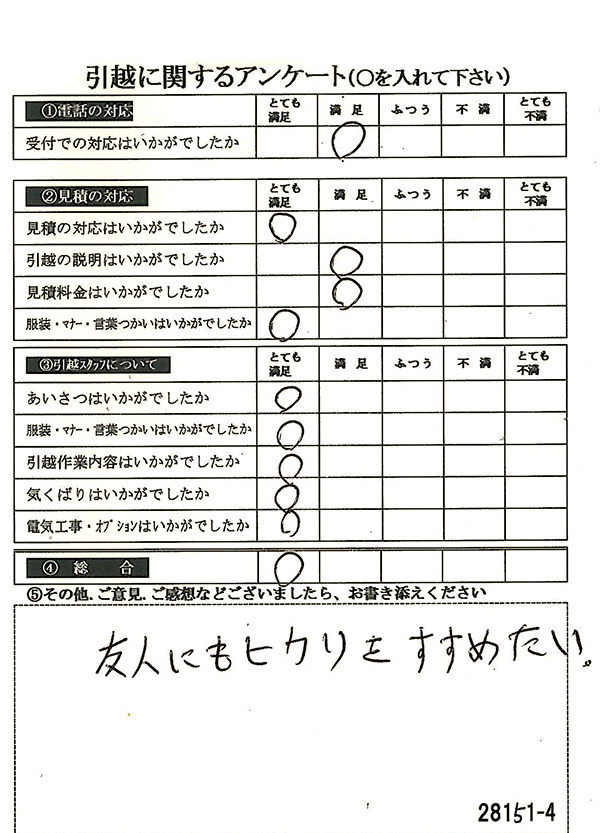 引越に関するアンケート(○を入れて下さい)
①電話の対応 とても満足 満足 ふつう 不満 とても不満
受付での対応はいかがでしたか ○
②見積の対応 とても満足 満足 ふつう 不満 とても不満
見積の対応はいかがでしたか ○
引越の説明はいかがでしたか ○
見積料金はいかがでしたか ○
服装・マナー・言葉つかいはいかがでしたか ○
③引越スタッフについて とても満足 満足 ふつう 不満 とても不満
あいさつはいかがでしたか ○
服装・マナー・言葉つかいはいかがでしたか ○
引越作業内容はいかがでしたか ○
気くばりはいかがでしたか ○
電気工事・オプションはいかがでしたか ○
④ 総 合 ○
⑤その他.ご意見.ご感想などございましたら、お書き添えください
友人にもヒカリをすすめたい。
28151-4